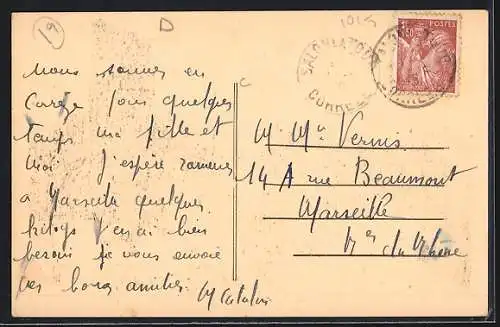 19
D
1015
SALON LA TOUR
CORREZE
POSTES
Nous sommes en
Correze pour quelques
temps ma fille et
moi j'espère ramener
à Marseille quelques
kilogs j'en ai bien
besoin je vous envoie
mes bons amitiés.
M. Mme Vernis
14 A rue Beaumont
Marseille
Bes du Rhône